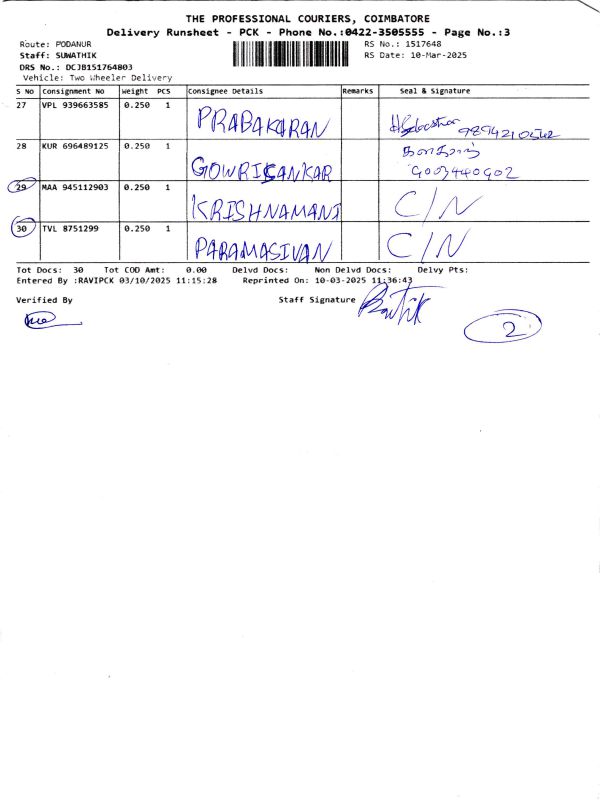 THE PROFESSIONAL COURIERS, COIMBATORE
Delivery Runsheet - PCK - Phone No.:0422-3505555 - Page No.:3
Route: PODANUR RS No.: 1517648
Staff: SUWATHIK RS Date: 10-Mar-2025
DRS No.: DCJB151764803
Vehicle: Two Wheeler Delivery
S No Consignment No Weight PCS Consignee Details Remarks Seal & Signature
27 VPL 939663585 0.250 1 PRABAKARAN 9894210542
28 KUR 696489125 0.250 1 GOWRISANKAR 9003440902
29 MAA 945112903 0.250 1 KRISHNAMANI C/N
30 TVL 8751299 0.250 1 PARAMASIVAN C/N
Tot Docs: 30 Tot COD Amt: 0.00 Delvd Docs: Non Delvd Docs: Delvy Pts:
Entered By :RAVIPCK 03/10/2025 11:15:28 Reprinted On: 10-03-2025 11:36:43
Verified By Staff Signature
2